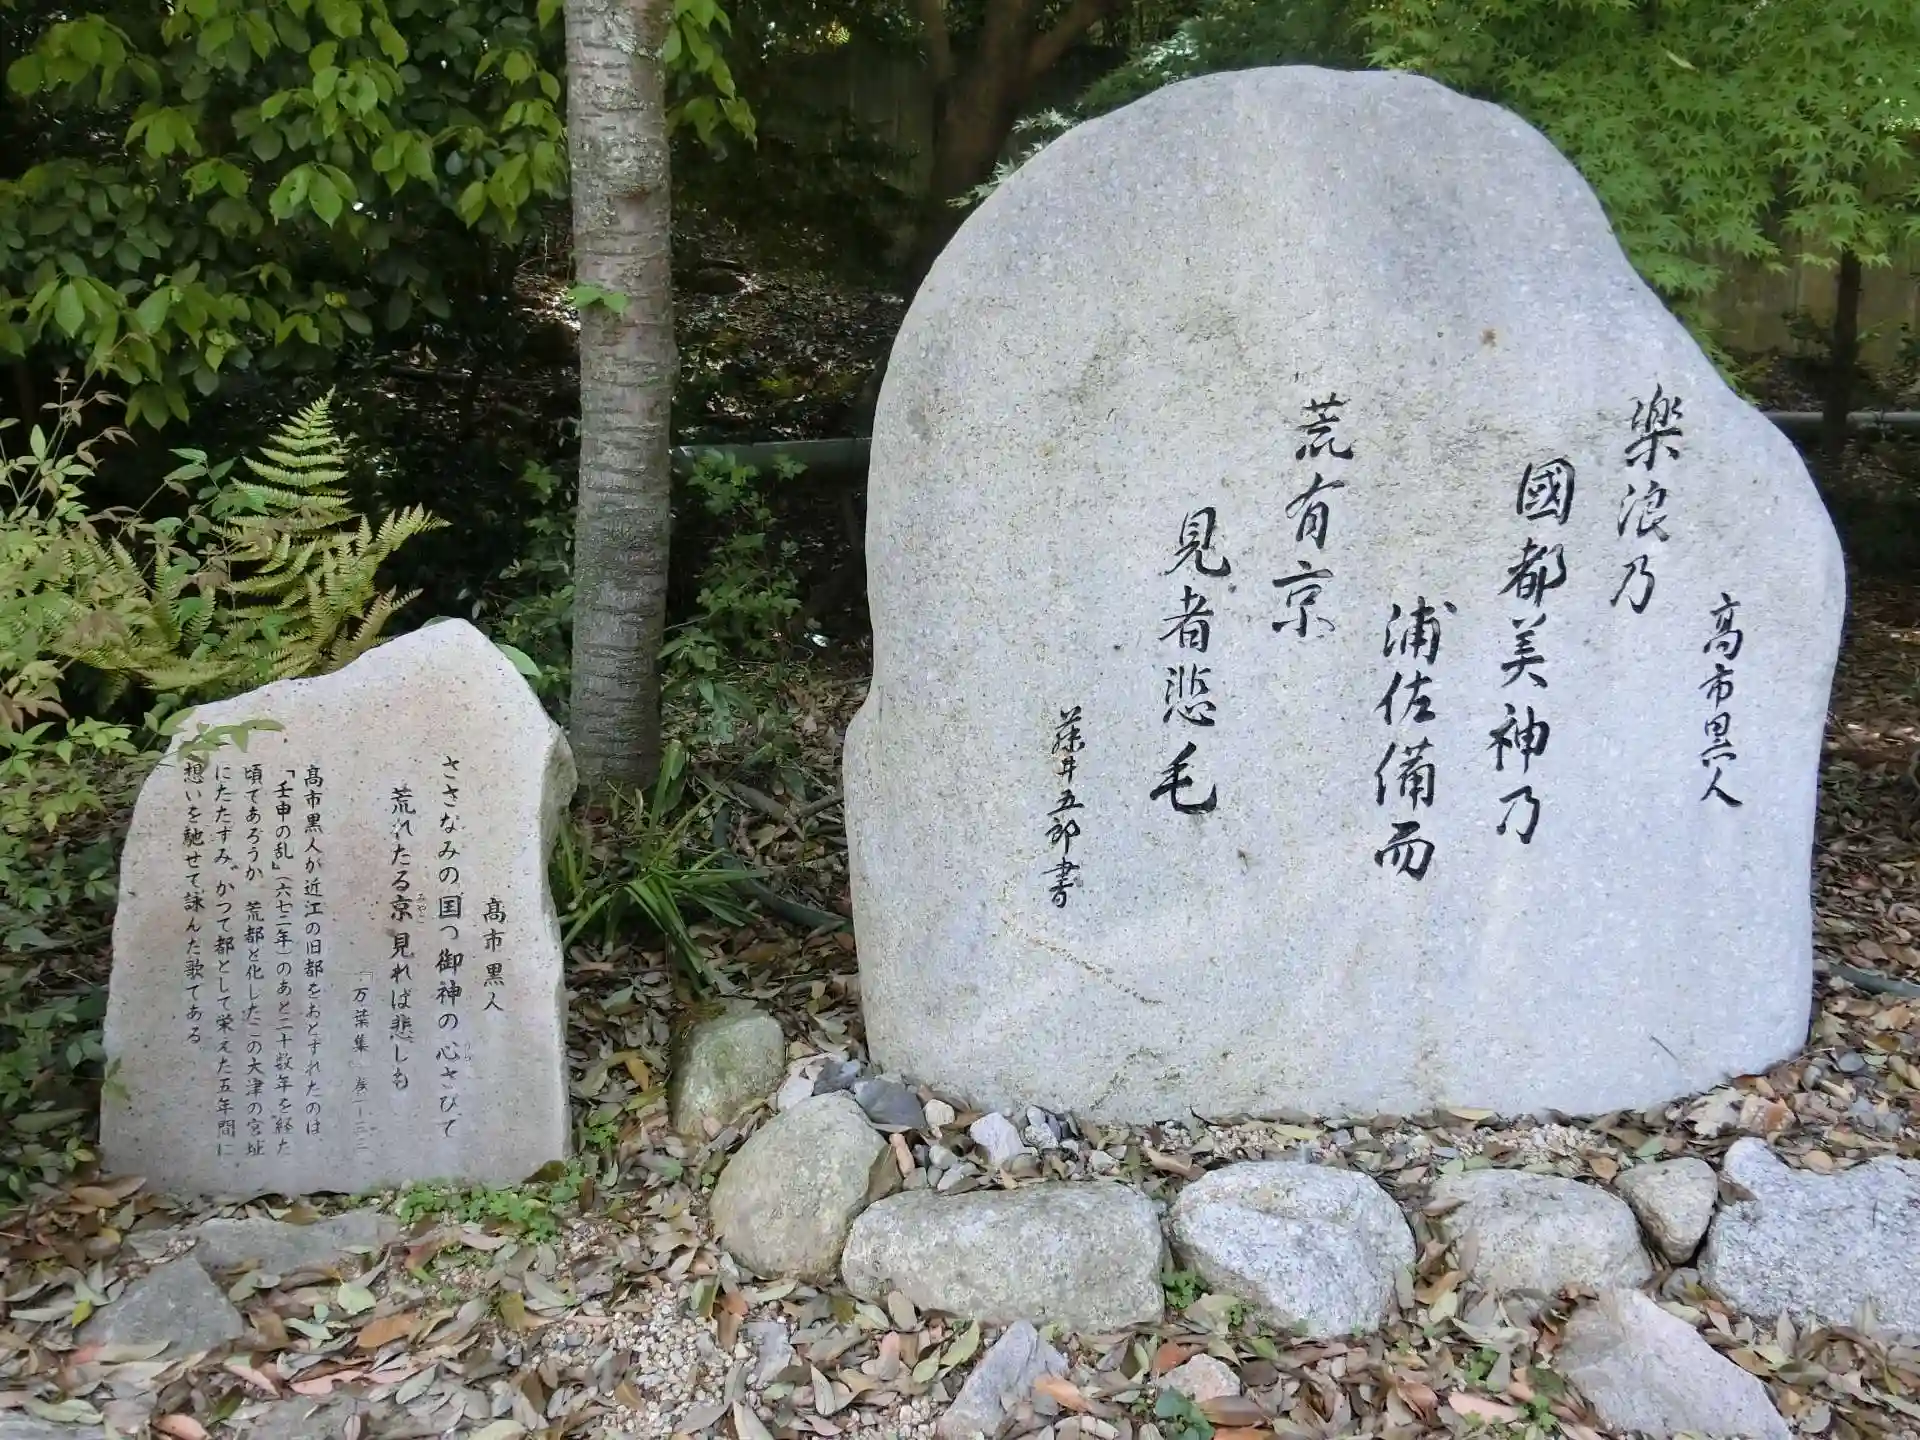 高市黒人
楽浪乃
國都美神乃
浦佐備而
荒有京
見者悲毛
藤井五郎書
高市黒人
ささなみの国つ御神の心さびて
荒れたる京見れば悲しも
みやこ
「万葉集」巻一–三三
高市黒人が近江の旧都をおとずれたのは
「壬申の乱」(六七二年)のあと二十数年を経た
頃であろうか 荒都と化したこの大津の宮址
にたたずみ、かつて都として栄えた五年間に
想いを馳せて詠んだ歌である